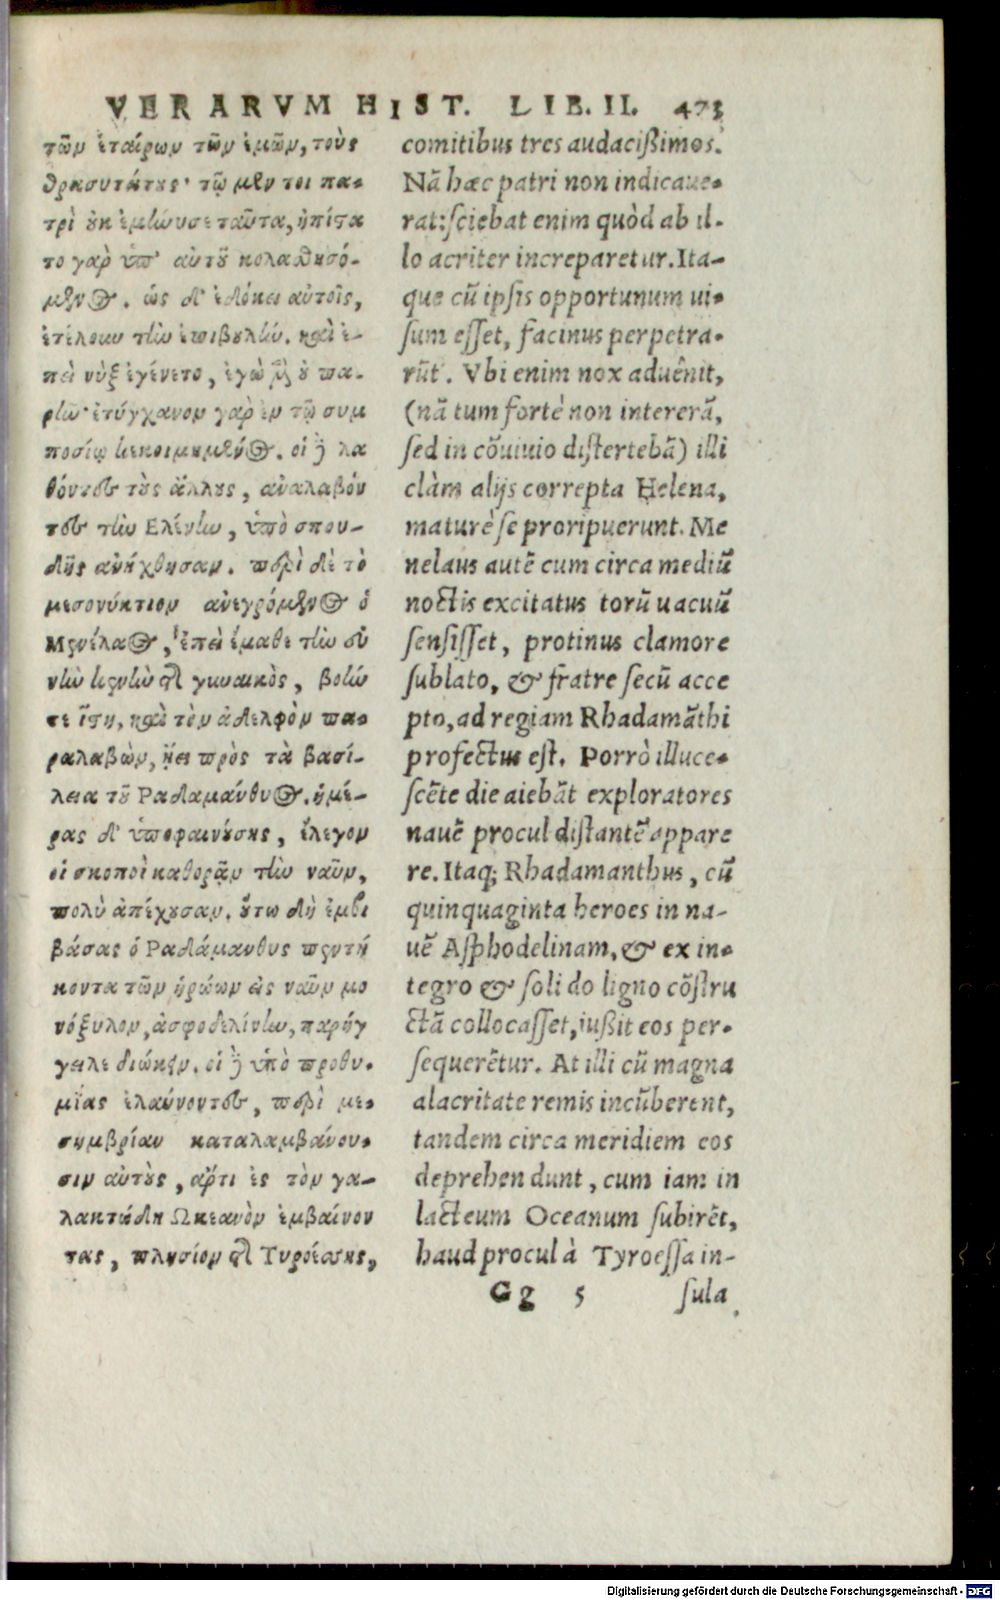 VERARVM HIST. LIB. II. 473
τῶν ἑταίρων τῶν ἐμῶν, τοὺς
θρασυτάτους· τῷ μέν τοι πα-
τρὶ οὐκ ἐμήνυσε ταῦτα, ἠπίστα
το γὰρ ὑπ' αὐτοῦ κολασθησό-
μενος. ὡς δ' ἐδόκει αὐτοῖς,
ἐτέλουν τὴν ἐπιβουλήν. καὶ ἐ-
πεὶ νὺξ ἐγένετο, ἐγὼ μὲν οὐ πα-
ρῆν· ἐτύγχανον γὰρ ἐν τῷ συμ
ποσίῳ κεκοιμημένος. οἱ δὲ λα
θόντες τοὺς ἄλλους, ἀναλαβόν
τες τὴν Ελένην, ὑπὸ σπου-
δῆς ἀνήχθησαν. περὶ δὲ τὸ
μεσονύκτιον ἀνεγρόμενος ὁ
Μενέλαος, ἐπεὶ ἔμαθε τὴν εὐ
νὴν κενὴν τῆς γυναικὸς, βοήν
τε ἵστη, καὶ τὸν ἀδελφὸν πα-
ραλαβὼν, ᾔει πρὸς τὰ βασί-
λεια τοῦ Ραδαμάνθυος. ἡμέ-
ρας δ' ὑποφαινούσης, ἔλεγον
οἱ σκοποὶ καθορᾷν τὴν ναῦν,
πολὺ ἀπέχουσαν. οὕτω δὴ ἐμβι
βάσας ὁ Ραδάμανθυς πεντή
κοντα τῶν ἡρώων εἰς ναῦν μο
νόξυλον, ἀσφοδελίνην, παρήγ
γειλε διώκειν. οἱ δὲ ὑπὸ προθυ-
μίας ἐλαύνοντες, περὶ με-
σημβρίαν καταλαμβάνου-
σιν αὐτοὺς, ἄρτι ἐς τὸν γα-
λακτώδη Ωκεανὸν ἐμβαίνον
τας, πλησίον τῆς Τυροέσσης,
comitibus tres audacißimos.
Nã hæc patri non indicaue-
rat: sciebat enim quòd ab il-
lo acriter increparetur. Ita-
que cũ ipsis opportunum ui-
sum esset, facinus perpetra-
rũt. Vbi enim nox aduênit,
(nã tum fortè non intererã,
sed in cõuiuio distertebã) illi
clàm alijs correpta Helena,
maturè se proripuerunt. Me
nelaus autẽ cum circa mediũ
noctis excitatus torũ uacuũ
sensisset, protinus clamore
sublato, & fratre secũ acce
pto, ad regiam Rhadamãthi
profectus est. Porrò illuce-
scẽte die aiebãt exploratores
nauẽ procul distantẽ appare
re. Itaq; Rhadamanthus, cũ
quinquaginta heroes in na-
uẽ Asphodelinam, & ex in-
tegro & solido ligno cõstru
ctã collocasset, iußit eos per-
sequerẽtur. At illi cũ magna
alacritate remis incũberent,
tandem circa meridiem eos
deprehendunt, cum iam in
lacteum Oceanum subirẽt,
haud procul à Tyroessa in-
Gg 5 sula
Digitalisierung gefördert durch die Deutsche Forschungsgemeinschaft - DFG